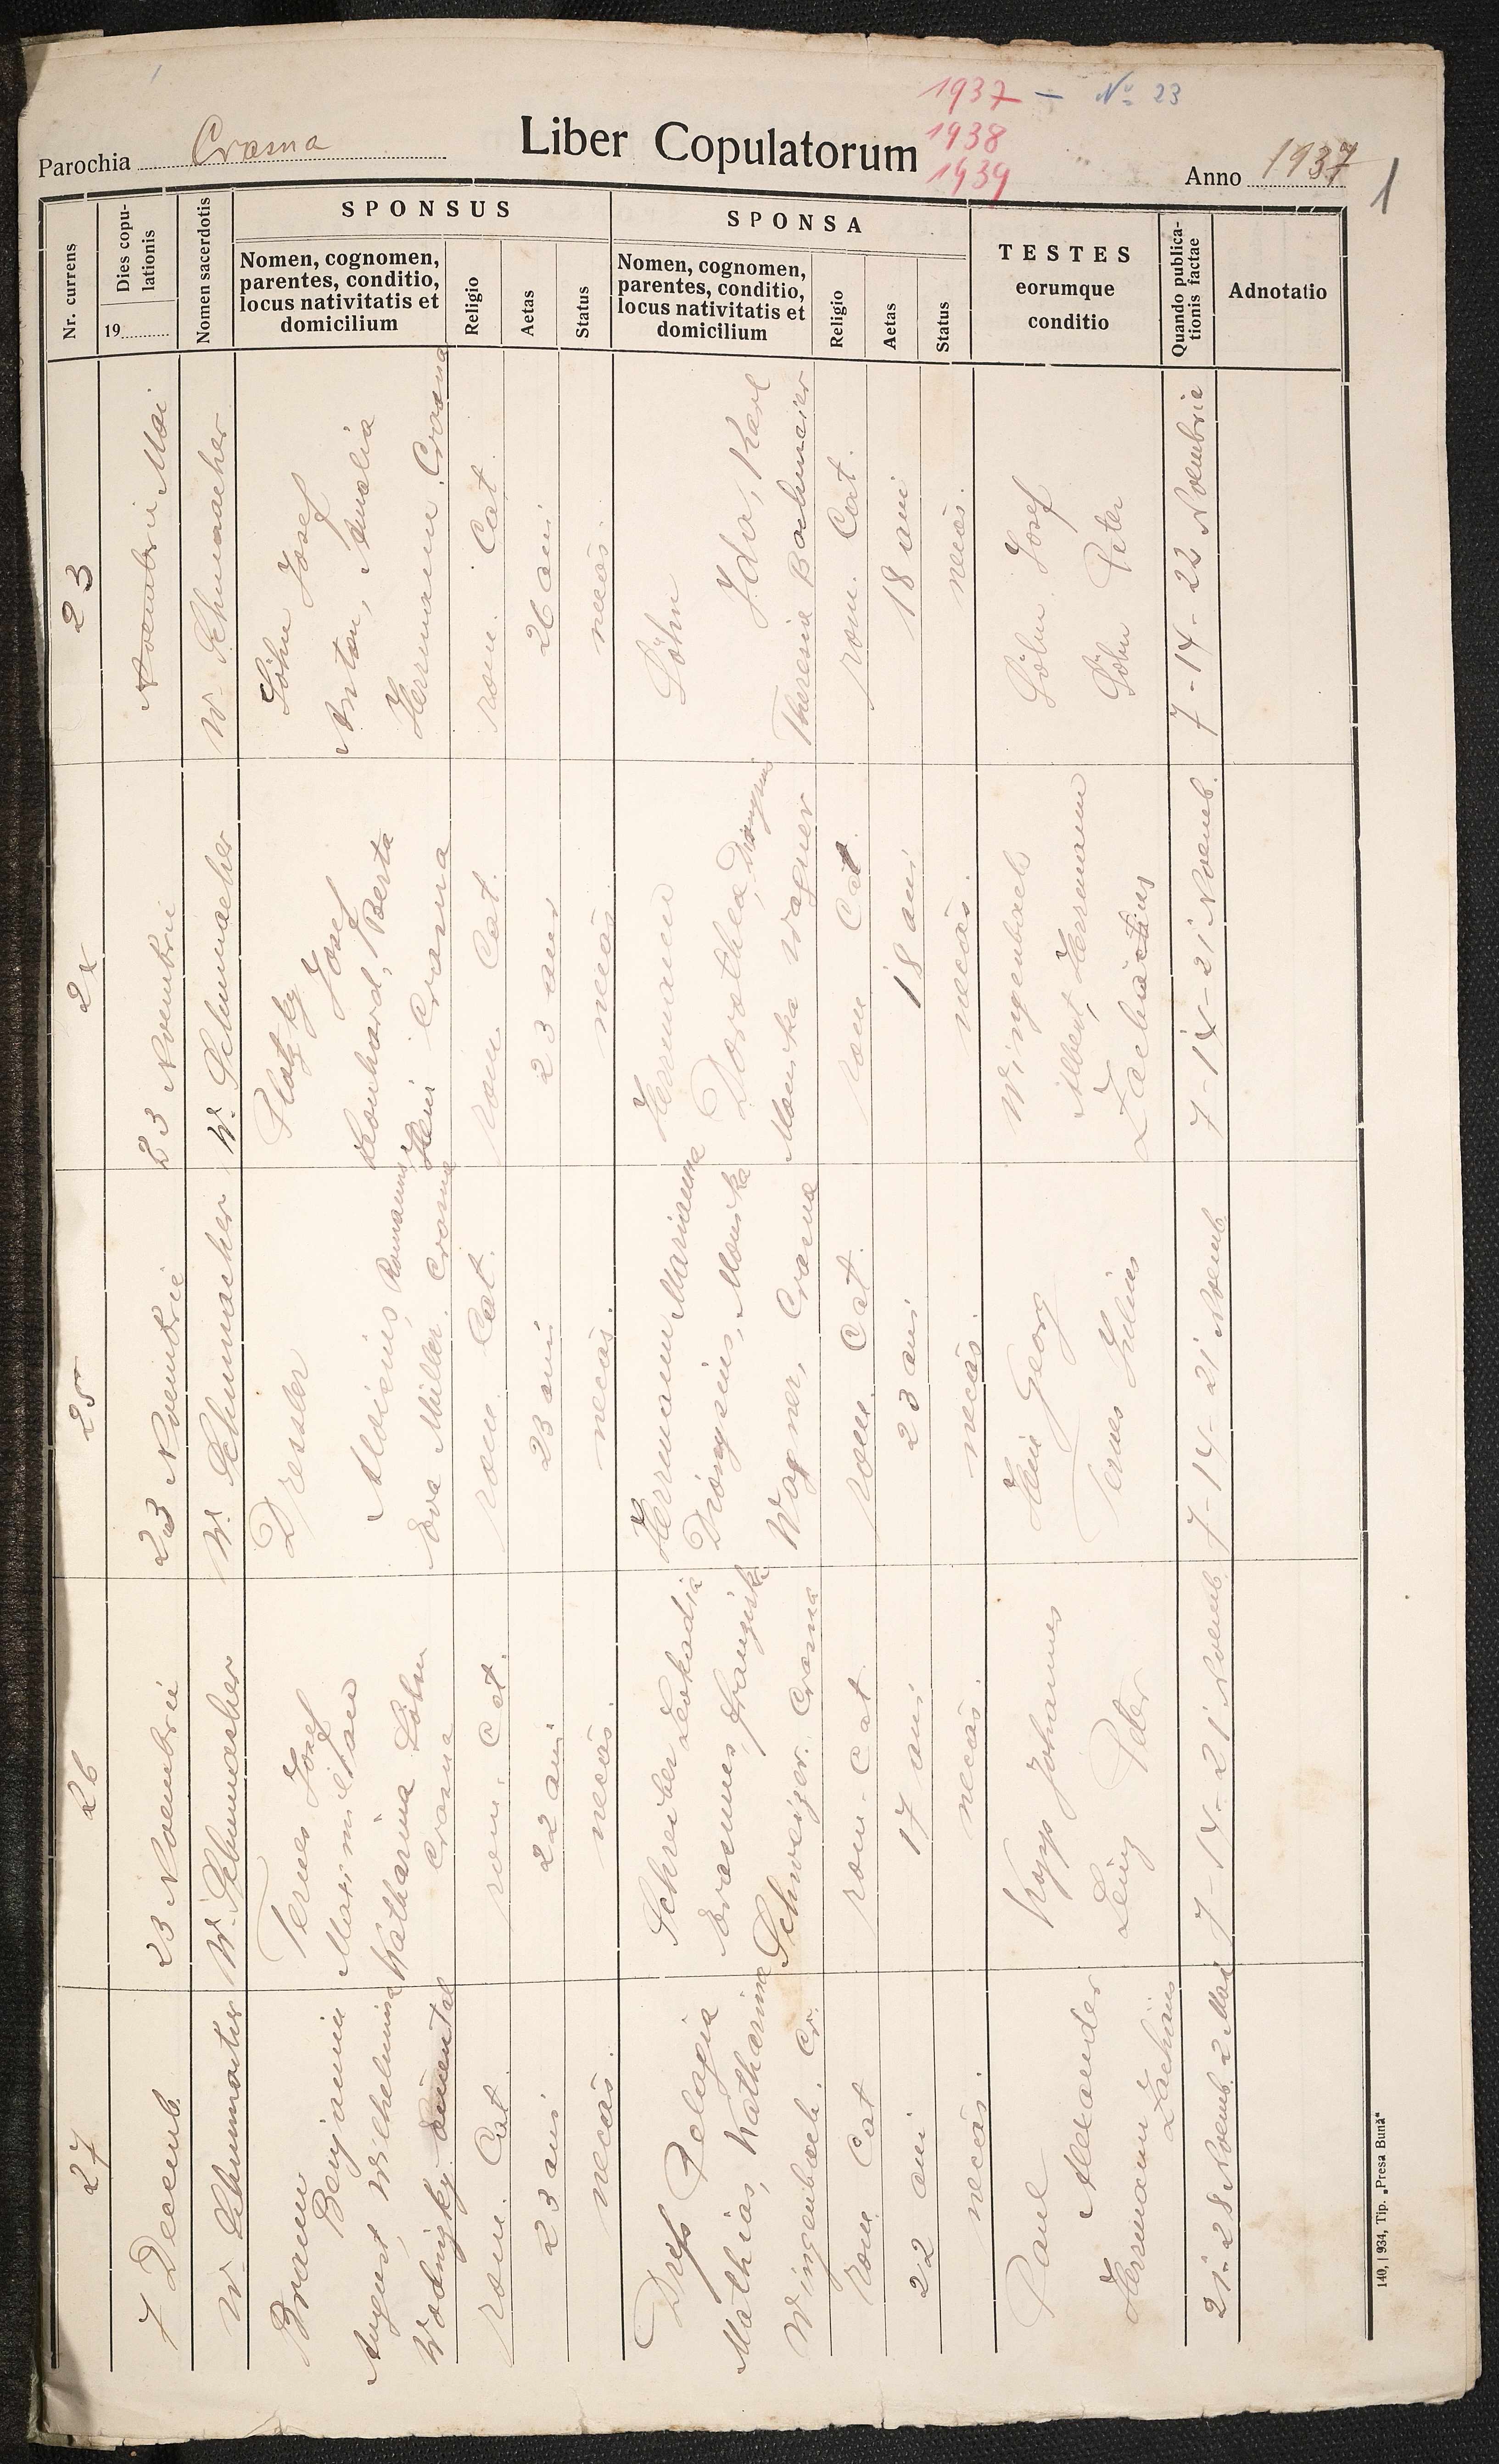 1937 — No 23
1938
1939
Parochia Crasna
Liber Copulatorum
Anno 1937
1
Nr. currens
Dies copu-
lationis
19
Nomen sacerdotis
SPONSUS
Nomen, cognomen,
parentes, conditio,
locus nativitatis et
domicilium
Religio
Aetas
Status
SPONSA
Nomen, cognomen,
parentes, conditio,
locus nativitatis et
domicilium
Religio
Aetas
Status
TESTES
eorumque
conditio
Quando publica-
tionis factae
Adnotatio
23
Noembrie Mai
W. Schumacher
Söhn Josef
Anton, Amalia
Herrmann. Crasna
rom. Cat.
26 ani
necăs.
Söhn
Ida, Karl
Theresia Bachmeier
rom. Cat.
18 ani
necăs.
Söhn Josef
Söhn Peter
7-14-22 Noembrie
24
23 Noembrie
W. Schumacher
Platzky
Josef
Leonhard, Berta
Hein Crasna
rom Cat.
23 ani
necăs
Herrmann
Dorothea, Dionysius
Monika Wagner
rom Cat.
18 ani
necăs.
Wingenbach
Albert, Herrmann
Zachäus
7-14-21 Noemb.
25
23 Noembrie
W. Schumacher
Dressler
Aloisius, Romanus
Eva Müller. Crasna
rom. Cat.
23 ani
necăs.
Herrmann Marianna
Dionysius, Monika
Wagner, Crasna
rom. Cat.
23 ani
necăs.
Hein Georg
Ternes Julius
7-14-21 Noemb
26
23 Noembrie
W. Schumacher
Ternes Josef
Maximilian
Katharina Söhn
Crasna
rom. Cat.
22 ani
necăs.
Schreiber Leokadia
Erasmus, Franziska
Schweizer. Crasna
rom. Cat
17 ani
necăs.
Kopp Johannes
Leinz Peter
7-14-21 Noemb.
27
7 Decemb.
W. Schumacher
Braun
Benjamin
August, Wilhelmina
Wodnizky. Emental
rom. Cat.
23 ani
necăs.
Drefs Pelagia
Mathias, Katharina
Wingenbach. Cr.
Rom. Cat
22 ani
necăs.
Paul
Alexander
Herrmann Zachäus
21-28 Noemb. 2
140, | 934, Tip. „Presa Bună“